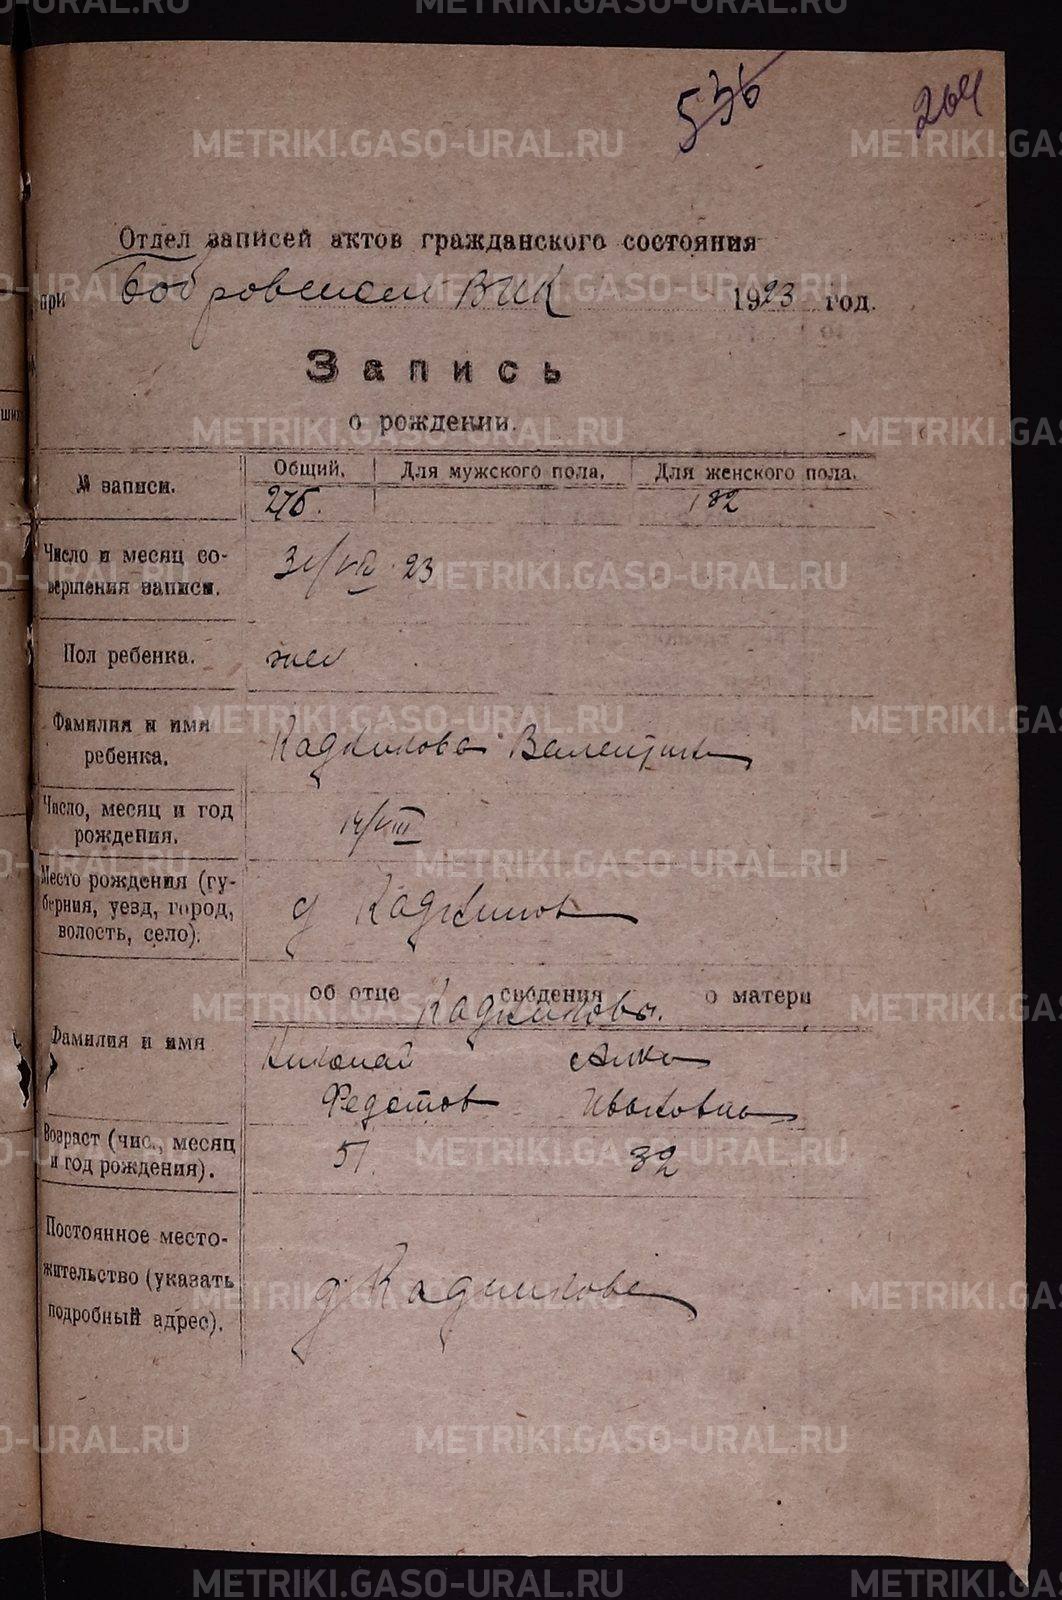 METRIKI.GASO-URAL.RU
536
264
Отдел записей актов гражданского состояния
при Бобровском ВИК 1923 год.
Запись
о рождении.
№ записи.
Общий. Для мужского пола. Для женского пола.
275. 182
Число и месяц со-
вершения записи.
31/VIII 23
Пол ребенка.
жен
Фамилия и имя
ребенка.
Кадникова Валентина
Число, месяц и год
рождения.
14/VIII
Место рождения (гу-
берния, уезд, город,
волость, село).
д Кадников
об отце сведения о матери
Кадниковы.
Фамилия и имя
Николай Анна
Федотов Ивановна
Возраст (чис., месяц
и год рождения).
51. 32
Постоянное место-
жительство (указать
подробный адрес).
д Кадникова